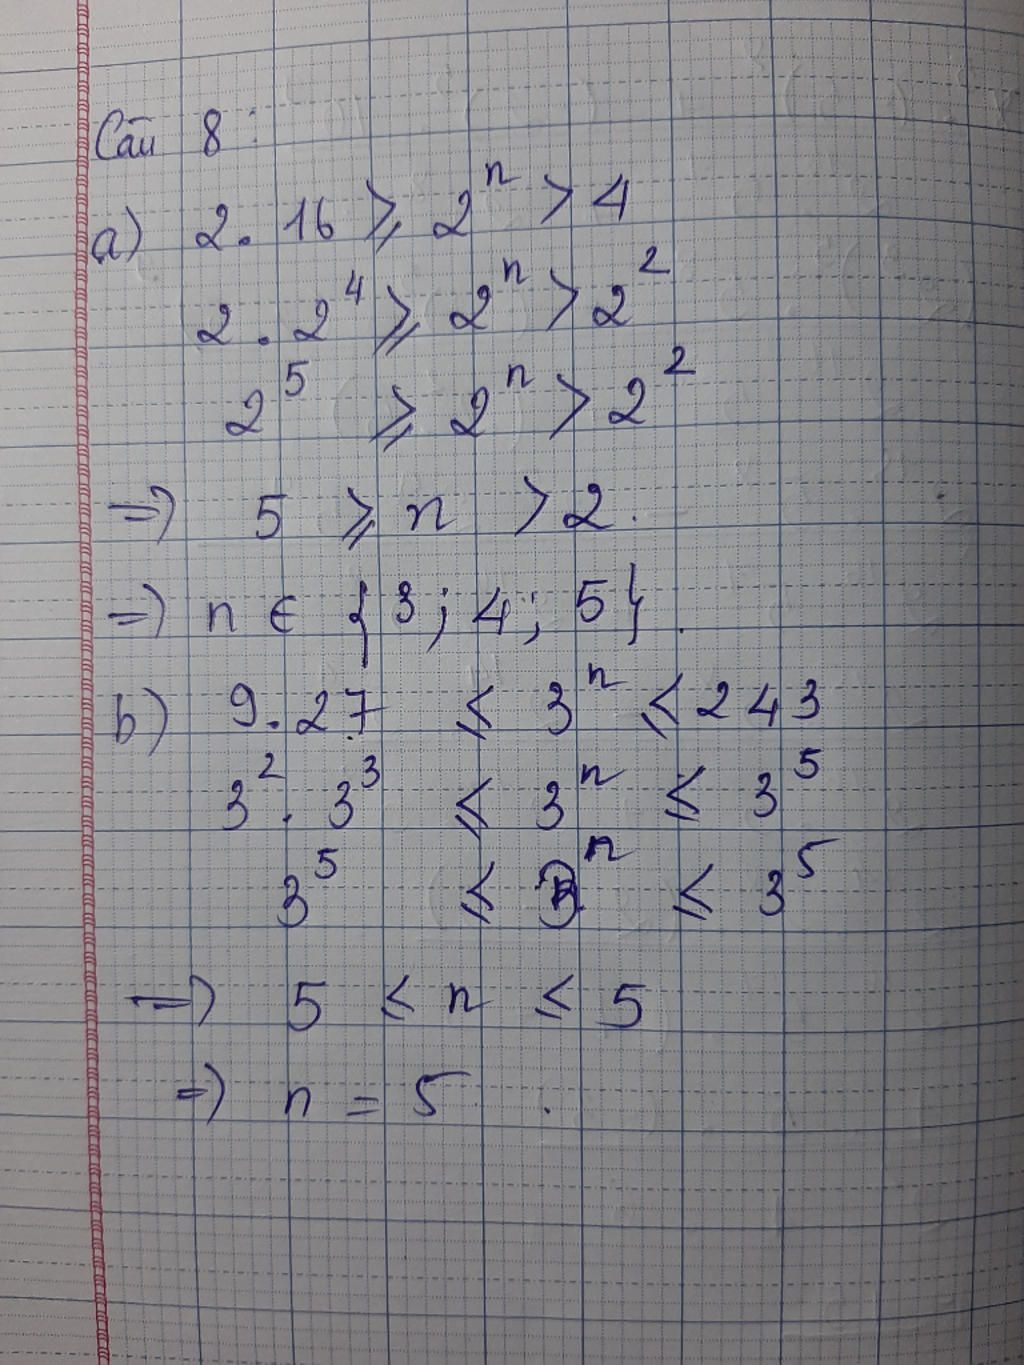 Câu 8:
a) 2.16 ⩾ 2ⁿ > 4
2.2⁴ ⩾ 2ⁿ > 2²
2⁵ ⩾ 2ⁿ > 2²
=) 5 ⩾ n > 2.
=) n ∈ {3; 4; 5}.
b) 9.27 ⩽ 3ⁿ ⩽ 243
3².3³ ⩽ 3ⁿ ⩽ 3⁵
3⁵ ⩽ 3ⁿ ⩽ 3⁵
=) 5 < n < 5
=) n = 5.